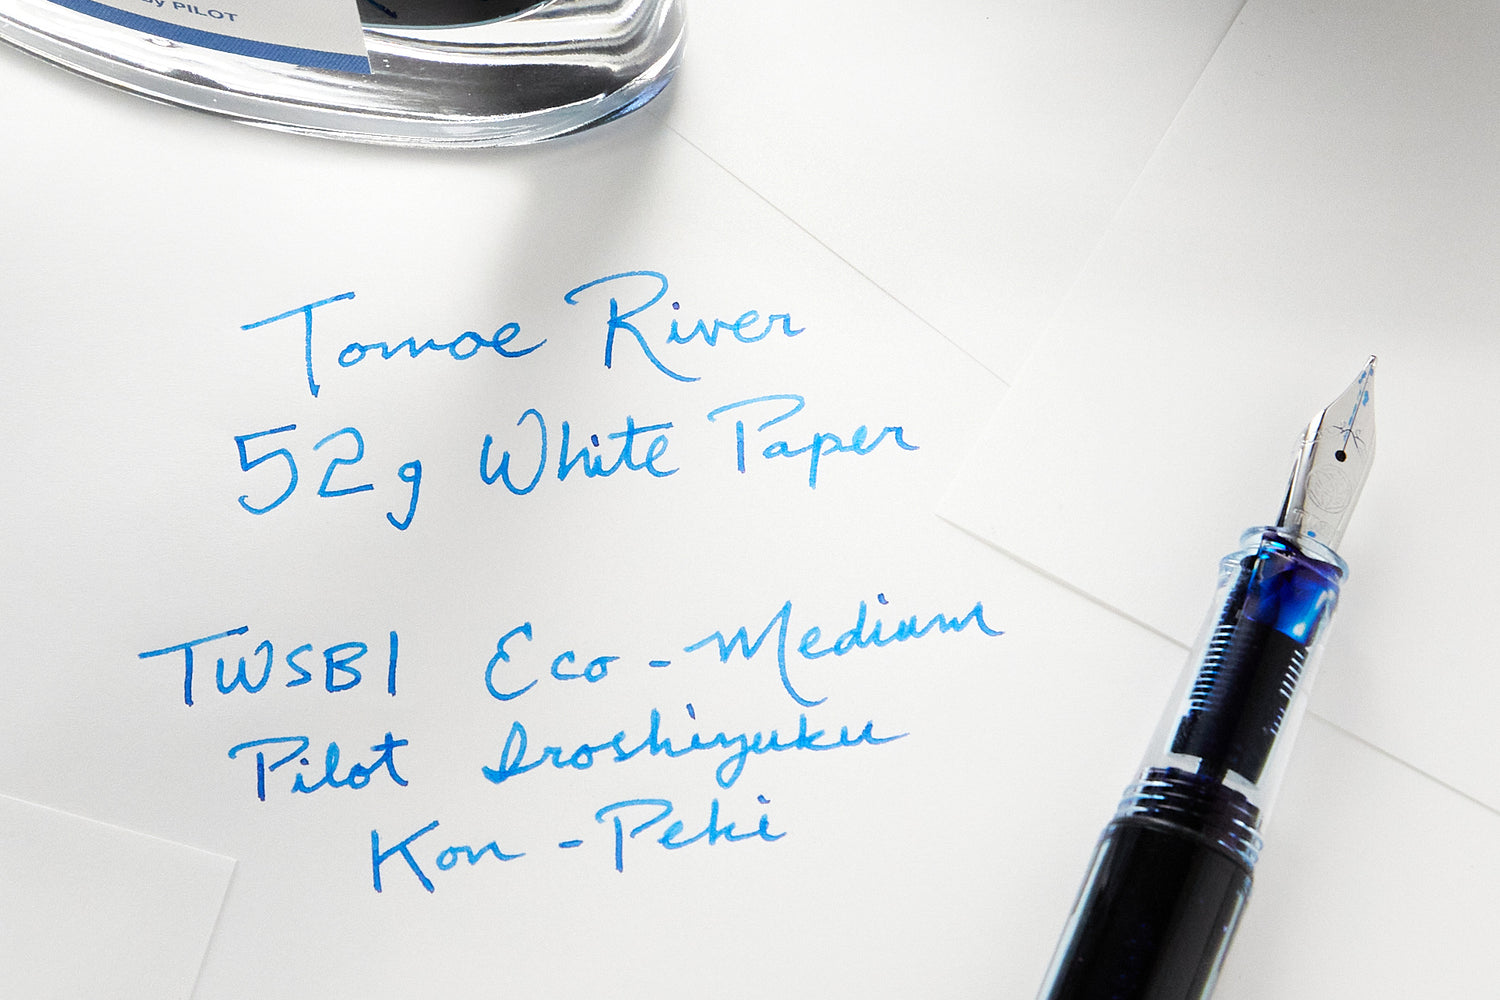 by PILOT
Tomoe River
52g White Paper
TWSBI Eco - Medium
Pilot Iroshizuku
Kon - Peki